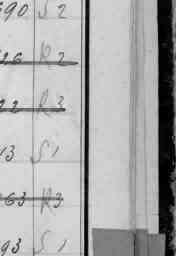 690 S 2
26 R 2
22 R 3
13 S 1
63 R 3
93 S 1